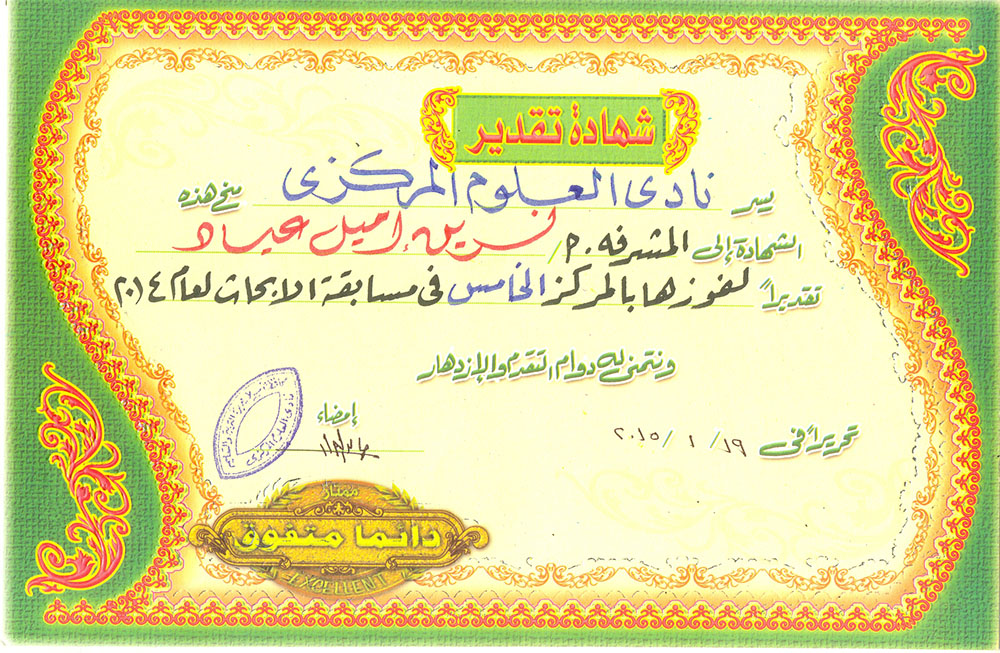 شهادة تقدير
يسر نادى العلوم المركزى يمنح هذه
الشهادة إلى المشرفه . م/ نسرين إميل عياد
تقديراً لفوزها بالمركز الخامس فى مسابقة الابحاث لعام ٢٠١٤
ونتمنى له دوام التقدم والإزدهار
إمضاء
تحريراً فى ١٩ / ١ / ٢٠١٥
نادى العلوم المركزى
ممتاز
دائما متفوق
EXCELLENT